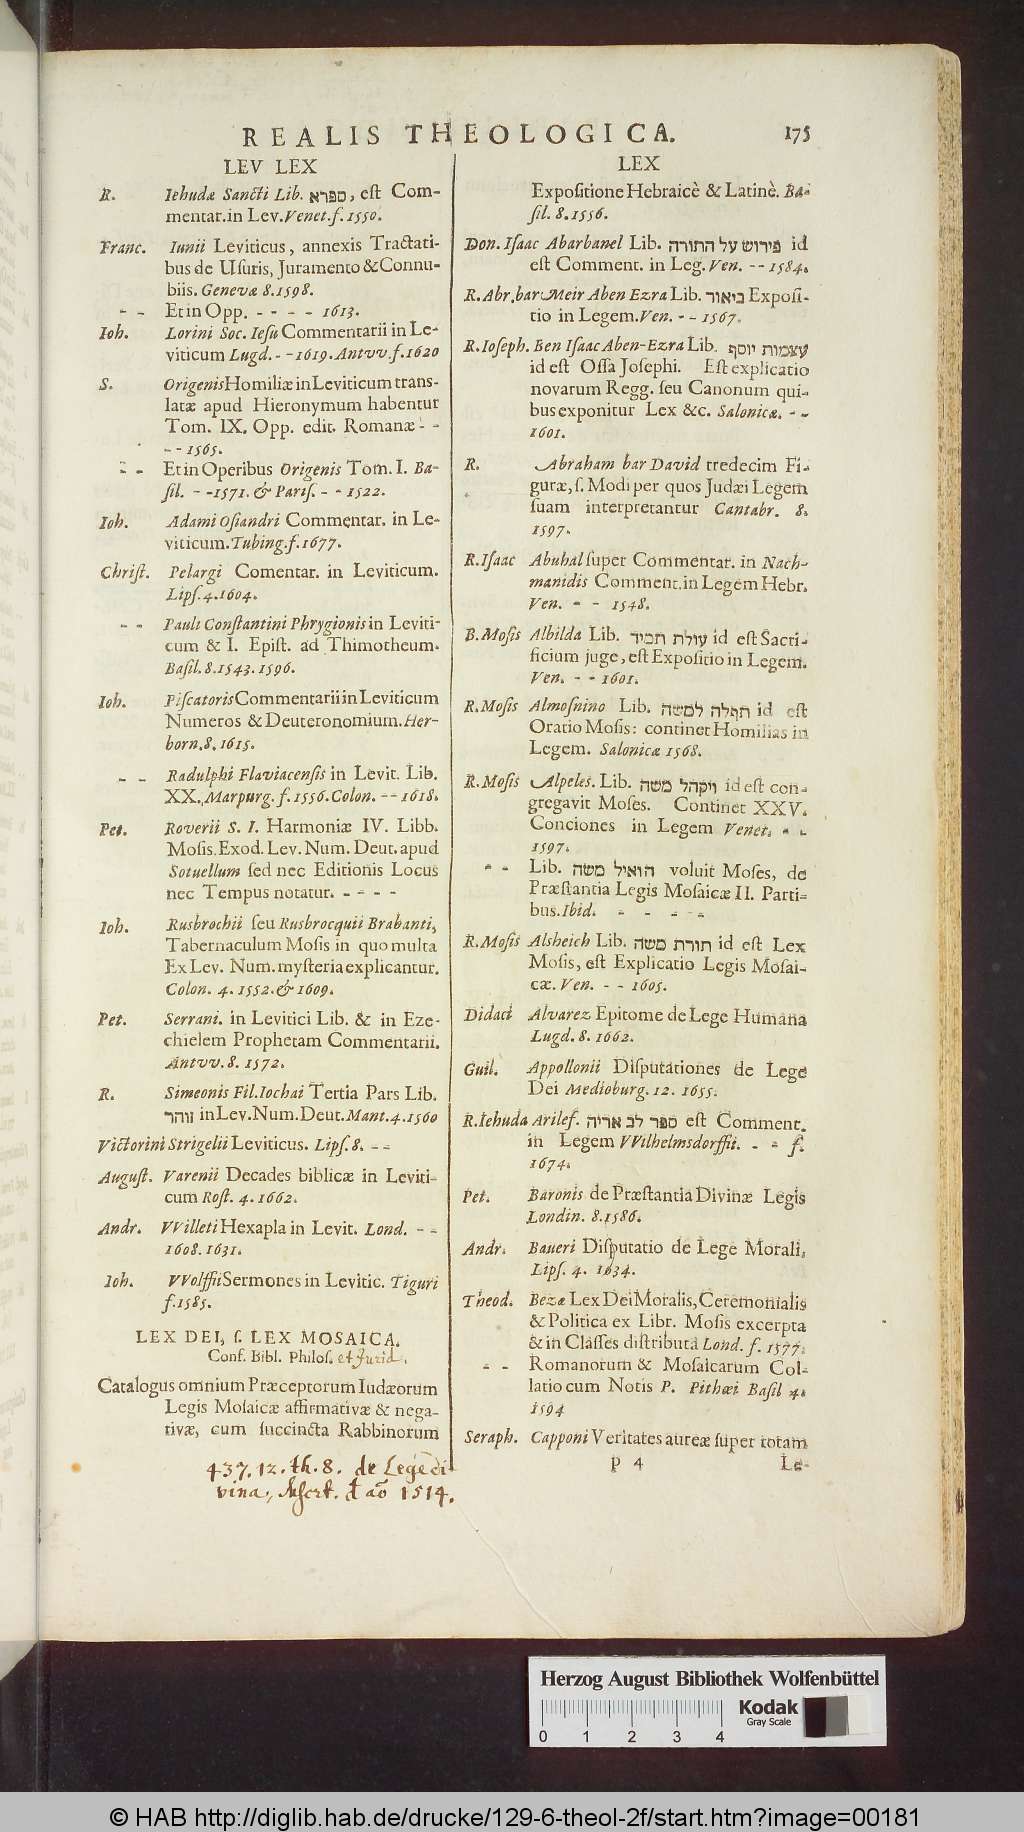 REALIS THEOLOGICA. 175
LEV LEX
R. Iehudæ Sancti Lib. ספרא, eſt Com-
mentar. in Lev. Venet. f. 1550.
Franc. Iunii Leviticus, annexis Tractati-
bus de Uſuris, Juramento & Connu-
biis. Genevæ 8. 1598.
- - Et in Opp. - - - - 1613.
Ioh. Lorini Soc. Ieſu Commentarii in Le-
viticum Lugd. - - 1619. Antvv. f. 1620
S. Origenis Homiliæ in Leviticum trans-
latæ apud Hieronymum habentur
Tom. IX. Opp. edit. Romanæ - -
- - 1565.
- - Et in Operibus Origenis Tom. I. Ba-
ſil. - - 1571. & Pariſ. - - 1522.
Ioh. Adami Oſiandri Commentar. in Le-
viticum. Tubing. f. 1677.
Chriſt. Pelargi Comentar. in Leviticum.
Lipſ. 4. 1604.
- - Pauli Conſtantini Phrygionis in Leviti-
cum & I. Epiſt. ad Thimotheum.
Baſil. 8. 1543. 1596.
Ioh. Piſcatoris Commentarii in Leviticum
Numeros & Deuteronomium. Her-
born. 8. 1615.
- - Radulphi Flaviacenſis in Levit. Lib.
XX. Marpurg. f. 1556. Colon. - - 1618.
Pet. Roverii S. I. Harmoniæ IV. Libb.
Moſis. Exod. Lev. Num. Deut. apud
Sotuellum ſed nec Editionis Locus
nec Tempus notatur. - - - -
Ioh. Rusbrochii ſeu Rusbrocquii Brabanti,
Tabernaculum Moſis in quo multa
Ex Lev. Num. myſteria explicantur.
Colon. 4. 1552. & 1609.
Pet. Serrani. in Levitici Lib. & in Eze-
chielem Prophetam Commentarii.
Antvv. 8. 1572.
R. Simeonis Fil. Iochai Tertia Pars Lib.
זוהר in Lev. Num. Deut. Mant. 4. 1560
Victorini Strigelii Leviticus. Lipſ. 8. - -
Auguſt. Varenii Decades biblicæ in Leviti-
cum Roſt. 4. 1662.
Andr. VVilleti Hexapla in Levit. Lond. - -
1608. 1631.
Ioh. VVolffii Sermones in Levitic. Tiguri
f. 1585.
LEX DEI, ſ. LEX MOSAICA.
Conf. Bibl. Philoſ. et Jurid.
Catalogus omnium Præceptorum Iudæorum
Legis Moſaicæ affirmativæ & nega-
tivæ, cum ſuccincta Rabbinorum
437. 12. th. 8. de Lege di
vina,
1514.
LEX
Expoſitione Hebraicè & Latinè. Ba-
ſil. 8. 1556.
Don. Iſaac Abarbanel Lib. פירוש על התורה id
eſt Comment. in Leg. Ven. - - 1584.
R. Abr. bar Meir Aben Ezra Lib. ביאור Expoſi-
tio in Legem. Ven. - - 1567.
R. Ioſeph. Ben Iſaac Aben-Ezra Lib. עצמות יוסף
id eſt Oſſa Joſephi. Eſt explicatio
novarum Regg. ſeu Canonum qui-
bus exponitur Lex &c. Salonicæ. - -
1601.
R. Abraham bar David tredecim Fi-
guræ, ſ. Modi per quos Judæi Legem
ſuam interpretantur Cantabr. 8.
1597.
R. Iſaac Abuhal ſuper Commentar. in Nach-
manidis Comment. in Legem Hebr.
Ven. - - 1548.
B. Moſis Albilda Lib. עולת תמיד id eſt Sacri-
ficium juge, eſt Expoſitio in Legem.
Ven. - - 1601.
R. Moſis Almoſnino Lib. תפלה למשה id eſt
Oratio Moſis: continet Homilias in
Legem. Salonicæ 1568.
R. Moſis Alpeles. Lib. ויקהל משה id eſt con-
gregavit Moſes. Continet XXV.
Conciones in Legem Venet. - -
1597.
- - Lib. הואיל משה voluit Moſes, de
Præſtantia Legis Moſaicæ II. Parti-
bus. Ibid. - - - -
R. Moſis Alsheich Lib. תורת משה id eſt Lex
Moſis, eſt Explicatio Legis Moſai-
cæ. Ven. - - 1605.
Didaci Alvarez Epitome de Lege Humana
Lugd. 8. 1662.
Guil. Appollonii Diſputationes de Lege
Dei Medioburg. 12. 1655.
R. Iehuda Arilef. ספר לב אריה eſt Comment.
in Legem VVilhelmsdorffii. - - f.
1674.
Pet. Baronis de Præſtantia Divinæ Legis
Londin. 8. 1586.
Andr. Baueri Diſputatio de Lege Morali,
Lipſ. 4. 1634.
Theod. Bezæ Lex Dei Moralis, Ceremonialis
& Politica ex Libr. Moſis excerpta
& in Claſſes diſtributa Lond. f. 1577.
- - Romanorum & Moſaicarum Col-
latio cum Notis P. Pithœi Baſil 4.
1594
Seraph. Capponi Veritates aureæ ſuper totam
p 4 Le-
Herzog August Bibliothek Wolfenbüttel
Kodak
Gray Scale
0 1 2 3 4
© HAB http://diglib.hab.de/drucke/129-6-theol-2f/start.htm?image=00181